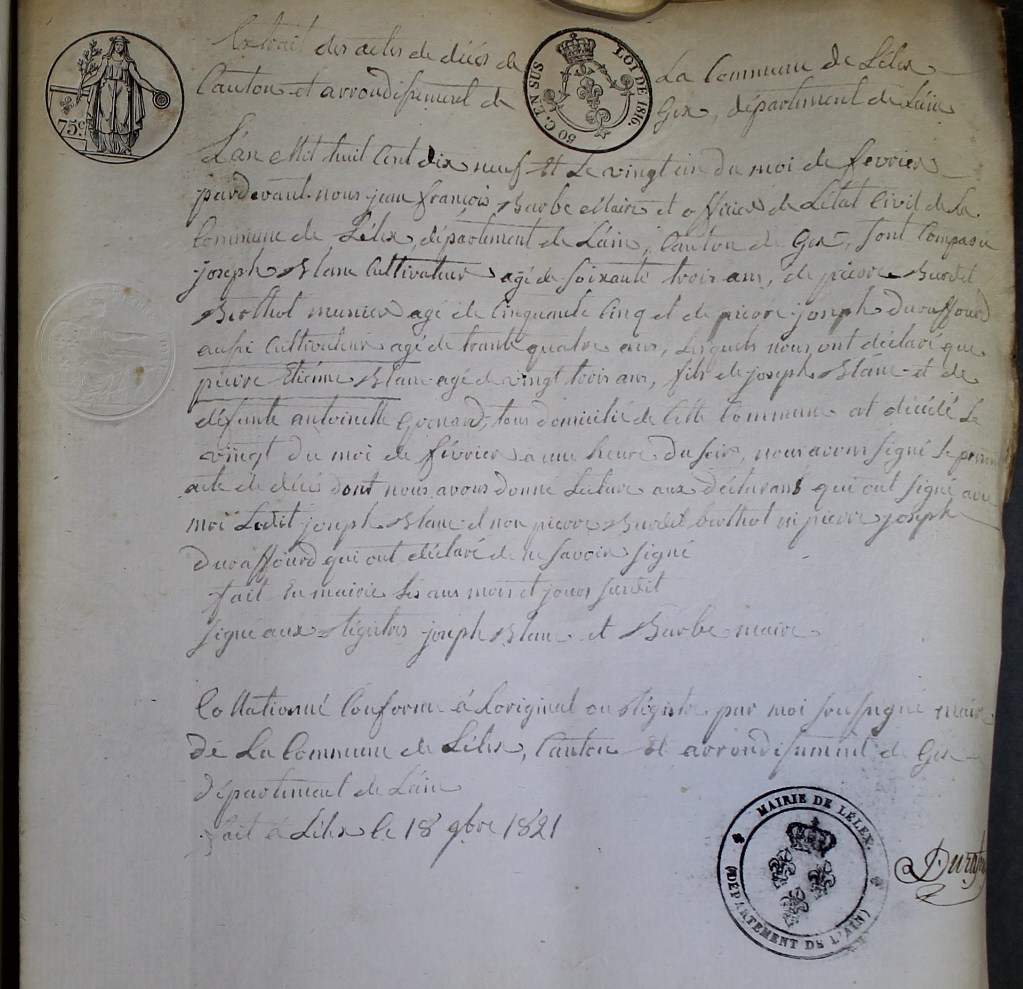 Extrait des actes de décés de La Commune de Lélex
Canton et arrondissement de Gex, département de Lain
75c.
50 C. EN SUS LOI DE 1816.
L'an Mil huit Cent dix neuf et Le vingt un du moi de fevrier
pardevant nous jean françois Barbe Maire et officier de Létat Civil de La
Commune de Lélex, département de Lain, Canton de Gex, sont Comparu
joseph Blanc Cultivateur agé de soixante trois ans, de pierre Burdet
Berthot munier agé de Cinquante Cinq et de pierre joseph Duraffourd
aussi Cultivateur agé de trante quatre ans, Lesquels nous ont déclaré que
pierre Etienne Blanc agé de vingt trois ans, fils de joseph Blanc et de
défunte antoinette Grosard, tous domicilié de Cette Commune est décédé Le
vingt du moi de février a une heure du soir, nous avons signé Le présent
acte de décés dont nous avons donné Lecture aux déclarans qui ont signé avec
moi Ledit joseph Blanc et non pierre Burdet berthot ni pierre joseph
Duraffourd qui ont déclaré de ne savoir signé
fait En mairie Les ans mois et jours susdit
signé aux Régistres joseph Blanc et Barbe maire
Collationné Conforme á Loriginal au Régistre par moi soussigné maire
de La Commune de Lélex, Canton et arrondissement de Gex
département de Lain
fait á Lélex le 18 9bre 1821
MAIRIE DE LÉLEX.
(DÉPARTEMENT DE L'AIN)